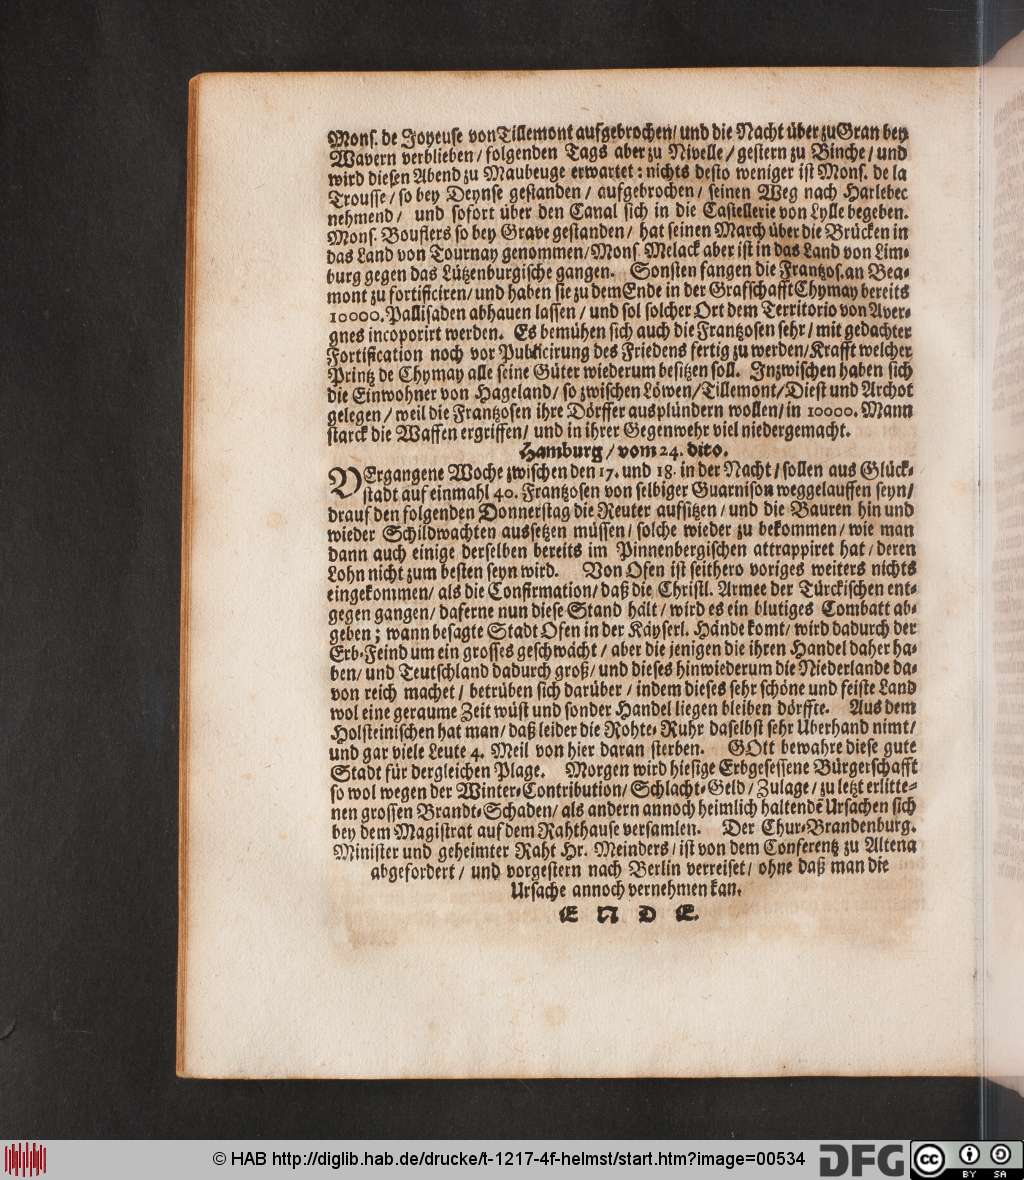 Mons. de Joyeuse von Tillemont aufgebrochen/ und die Nacht über zu Gran bey
Wavern verblieben/ folgenden Tags aber zu Nivelle/ gestern zu Binche/ und
wird diesen Abend zu Maubeuge erwartet: nichts desto weniger ist Mons. de la
Trousse/ so bey Deynse gestanden/ aufgebrochen/ seinen Weg nach Harlebec
nehmend/ und sofort über den Canal sich in die Castellerie von Lylle begeben.
Mons. Bouflers so bey Grave gestanden/ hat seinen March über die Brücken in
das Land von Tournay genommen/ Mons. Melack aber ist in das Land von Lim-
burg gegen das Lützenburgische gangen. Sonsten fangen die Frantzos. an Bea-
mont zu fortificiren/ und haben sie zu dem Ende in der Grafschafft Chymay bereits
10000. Pallisaden abhauen lassen/ und sol solcher Ort dem Territorio von Aver-
gnes incoporirt werden. Es bemühen sich auch die Frantzosen sehr/ mit gedachter
Fortification noch vor Publicirung des Friedens fertig zu werden/ Krafft welcher
Printz de Chymay alle seine Güter wiederum besitzen soll. Inzwischen haben sich
die Einwohner von Hageland/ so zwischen Löwen/ Tillemont/ Diest und Archot
gelegen/ weil die Frantzosen ihre Dörffer ausplündern wollen/ in 10000. Mann
starck die Waffen ergriffen/ und in ihrer Gegenwehr viel niedergemacht.
Hamburg/ vom 24. dito.
VErgangene Woche zwischen den 17. und 18. in der Nacht/ sollen aus Glück-
stadt auf einmahl 40. Frantzosen von selbiger Guarnison weggelauffen seyn/
drauf den folgenden Donnerstag die Reuter aufsitzen/ und die Bauren hin und
wieder Schildwachten aussetzen müssen/ solche wieder zu bekommen/ wie man
dann auch einige derselben bereits im Pinnenbergischen attrappiret hat/ deren
Lohn nicht zum besten seyn wird. Von Ofen ist seithero voriges weiters nichts
eingekommen/ als die Confirmation/ daß die Christl. Armee der Türckischen ent-
gegen gangen/ daferne nun diese Stand hält/ wird es ein blutiges Combatt ab-
geben; wann besagte Stadt Ofen in der Käyserl. Hände komt/ wird dadurch der
Erb-Feind um ein grosses geschwächt/ aber die jenigen die ihren Handel daher ha-
ben/ und Teutschland dadurch groß/ und dieses hinwiederum die Niederlande da-
von reich machet/ betrüben sich darüber/ indem dieses sehr schöne und feiste Land
wol eine geraume Zeit wüst und sonder Handel liegen bleiben dörffte. Aus dem
Holsteinischen hat man/ daß leider die Rohte-Ruhr daselbst sehr Uberhand nimt/
und gar viele Leute 4. Meil von hier daran sterben. GOtt bewahre diese gute
Stadt für dergleichen Plage. Morgen wird hiesige Erbgesessene Bürgerschafft
so wol wegen der Winter-Contribution/ Schlacht-Geld/ Zulage/ zu letzt erlitte-
nen grossen Brandt-Schaden/ als andern annoch heimlich haltendē Ursachen sich
bey dem Magistrat auf dem Rahthause versamlen. Der Chur-Brandenburg.
Minister und geheimter Raht Hr. Meinders/ ist von dem Conferentz zu Altena
abgefordert/ und vorgestern nach Berlin verreiset/ ohne daß man die
Ursache annoch vernehmen kan.
E N D E.
© HAB http://diglib.hab.de/drucke/t-1217-4f-helmst/start.htm?image=00534
DFG
cc BY SA